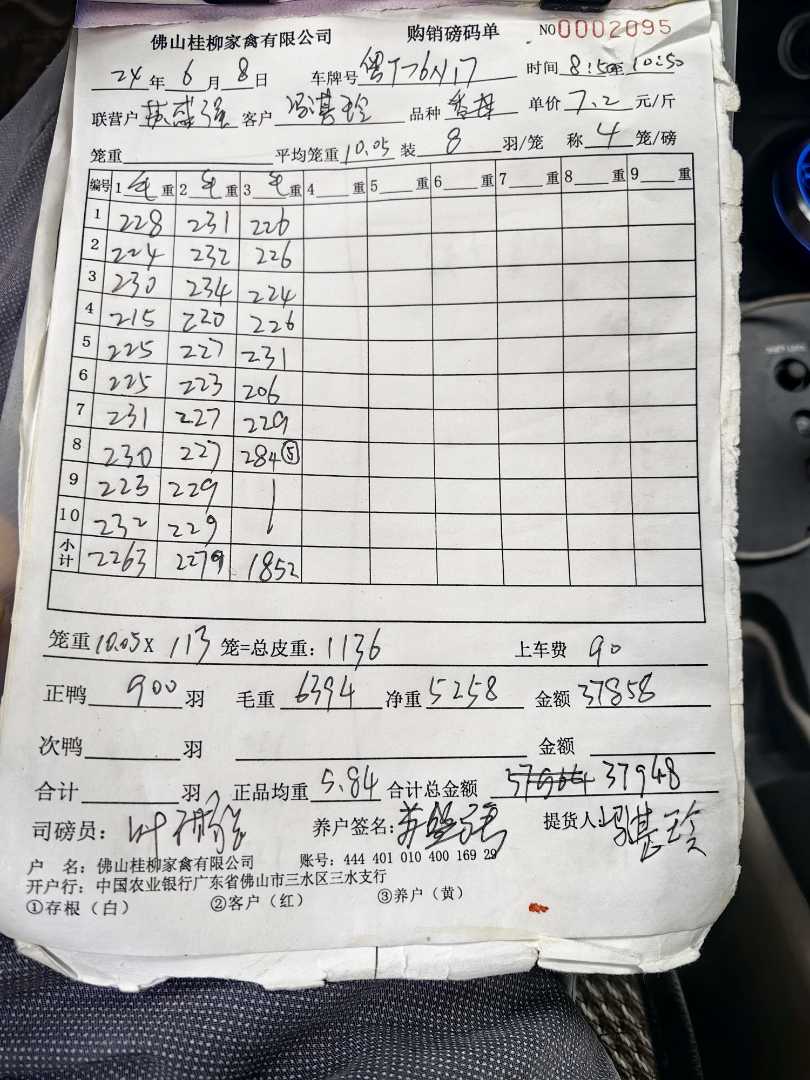 佛山桂柳家禽有限公司 购销磅码单 NO0002095
24年6月8日 车牌号 粤T76N17 时间 8:50至10:50
联营户 强 客户 冯湛玲 品种 单价 7.2 元/斤
笼重 平均笼重 10.05 装 8 羽/笼 称 4 笼/磅
编号 1 毛 重 2 毛 重 3 毛 重 4 重 5 重 6 重 7 重 8 重 9 重
1 228 231 226
2 224 232 226
3 230 234 224
4 215 220 226
5 225 227 231
6 225 223 206
7 231 227 229
8 230 227 284⑤
9 223 229 /
10 232 229 /
小计 2263 2279 1852
笼重 10.05 X 113 笼=总皮重: 1136 上车费 90
正鸭 900 羽 毛重 6394 净重 5258 金额 37858
次鸭 羽 金额
合计 羽 正品均重 5.84 合计总金额 37948
司磅员: 叶 养户签名: 强 提货人: 冯湛玲
户 名: 佛山桂柳家禽有限公司 账号: 444 401 010 400 169 29
开户行: 中国农业银行广东省佛山市三水区三水支行
①存根(白) ②客户(红) ③养户(黄)